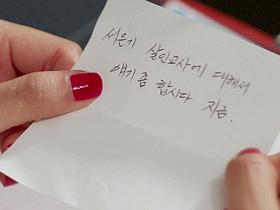 서은기 살인교사에 대해서
얘기 좀 합시다 지금.